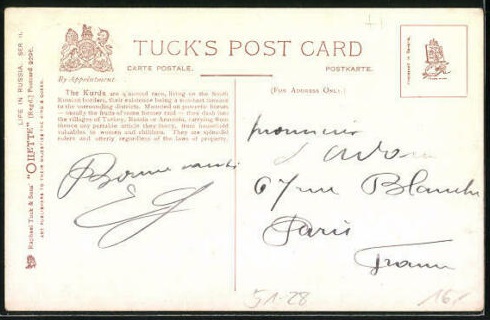 TUCK'S POST CARD
CARTE POSTALE.
POSTKARTE.
By Appointment.
(FOR ADDRESS ONLY.)
The Kurds are a nomad race, living on the South
Russian borders, their existence being a constant menace
to the surrounding districts. Mounted on powerful horses
— usually the fruits of some former raid — they dash into
the villages of Turkey, Russia or Armenia, carrying from
thence any portable article they fancy, from household
valuables to women and children. They are splendid
riders and utterly regardless of the laws of property.
LIFE IN RUSSIA. SER II.
Raphael Tuck & Sons' "OILETTE" (Regd.) Postcard
ART PUBLISHERS TO THEIR MAJESTIES THE KING & QUEEN.
Bonne santé
67 rue Blanche
Paris
France
51-28
16,-